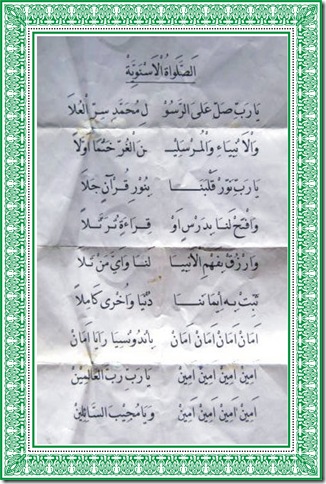 اَلصَّلَوَاةُ الْاَسْنَوِيَّةْ
يَارَبِّ صَلِّ عَلَى الرَّسُوْ لِ مُحَمَّدٍ سِرِّ الْعُلَا
وَالْاَنْبِيَاءِ وَالْمُرْسَلِيْـ ـنَ الْغُرِّ خَتْمًا اَوَّلَا
يَارَبِّ نَوِّرْ قَلْبَنَــا بِنُوْرِ قُرْآنٍ جَلَا
وَافْتَحْ لَنَا بِدَرْسٍ اَوْ قِرَاءَةٍ تُرَتَّــلَا
وَارْزُقْ بِفَهْمِ الْاَنْبِيَا لَنَا وَاَيَّ مَنْ تَلَا
ثَبِّتْ بِهِ اِيْمَانَنَــا دُنْيَا وَاُخْرَى كَامِلًا
اَمَانْ اَمَانْ اَمَانْ اَمَانْ بِاِنْدُوْنِيْسِيَا رَايَا اَمَانْ
اٰمِيْنْ اٰمِيْنْ اٰمِيْنْ اٰمِيْنْ يَارَبِّ رَبَّ الْعَالَمِيْنْ
اٰمِيْنْ اٰمِيْنْ اٰمِيْنْ اٰمِيْنْ وَيَامُجِيْبَ السَّائِلِيْنْ